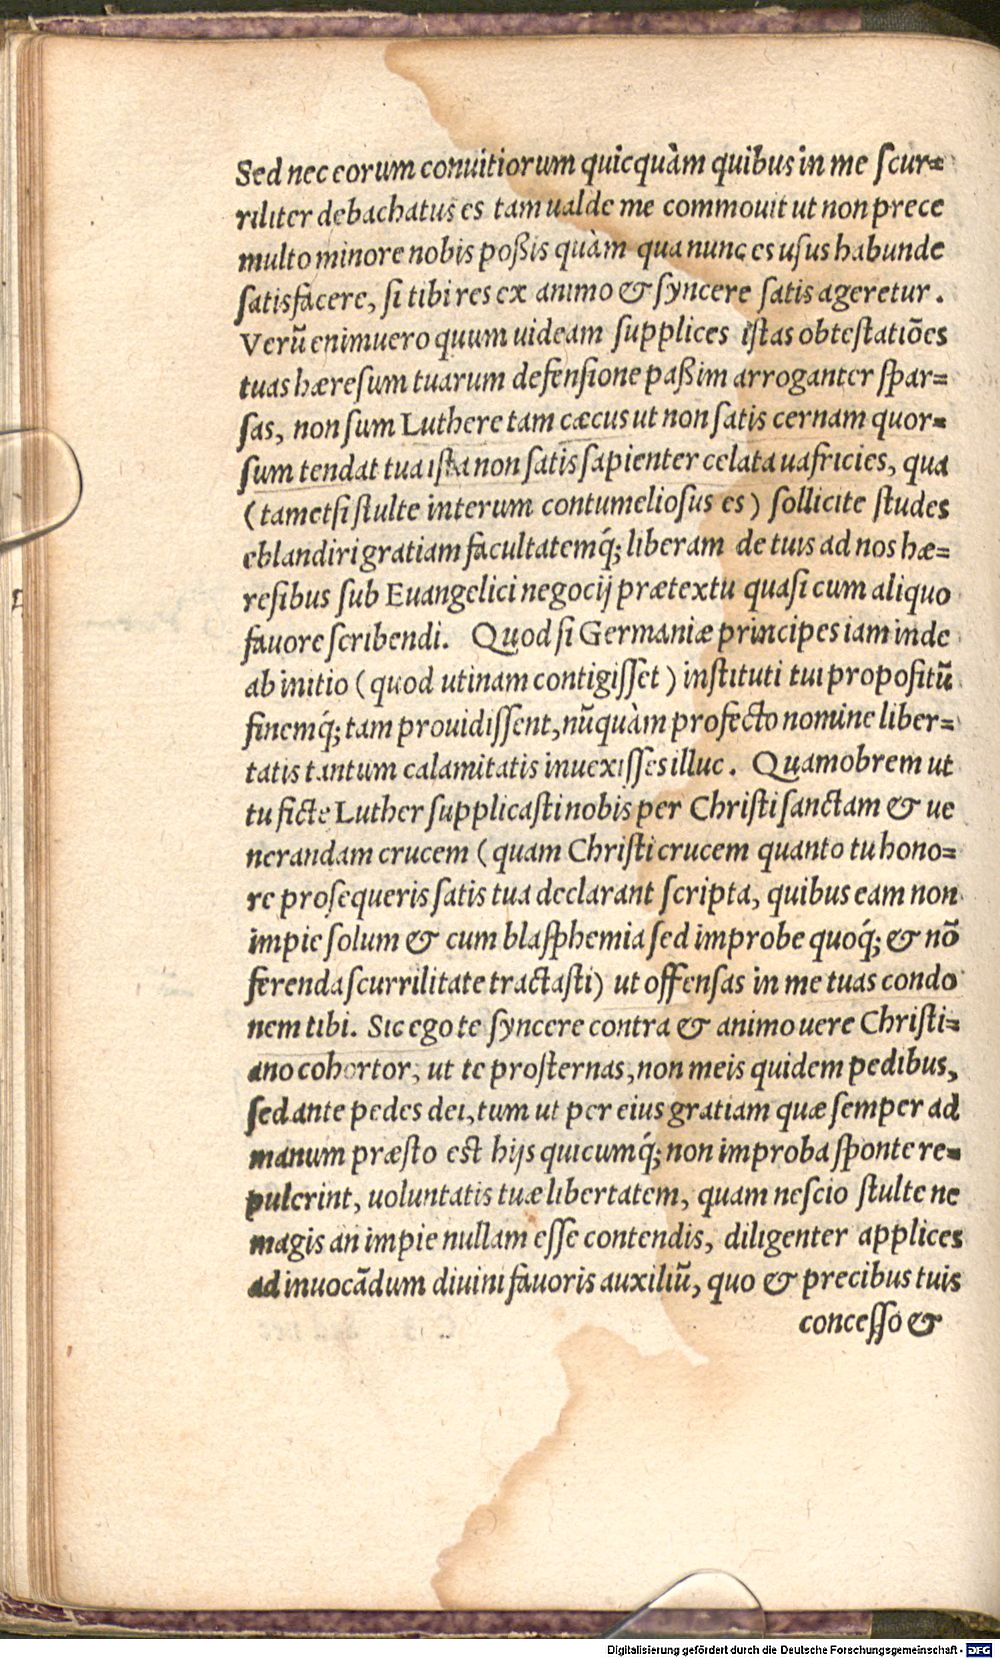 Sed nec eorum conuitiorum quicquàm quibus in me ſcur=
riliter debachatus es tam ualde me commouit ut non prece
multo minore nobis poßis quàm qua nunc es uſus habunde
ſatisfacere, ſi tibi res ex animo & ſyncere ſatis ageretur.
Verũ enimuero quum uideam ſupplices iſtas obteſtatiões
tuas hæreſum tuarum defenſione paßim arroganter ſpar=
ſas, non ſum Luthere tam cæcus ut non ſatis cernam quor=
ſum tendat tua iſta non ſatis ſapienter celata uafricies, qua
(tametſi ſtulte interum contumelioſus es) ſollicite ſtudes
eblandiri gratiam facultatemq́; liberam de tuis ad nos hæ=
reſibus ſub Euangelici negocij prætextu quaſi cum aliquo
fauore ſcribendi. Quod ſi Germaniæ principes iam inde
ab initio (quod utinam contigiſſet) inſtituti tui propoſitũ
finemq́; tam prouidiſſent, nũquàm profecto nomine liber=
tatis tantum calamitatis inuexiſſes illuc. Quamobrem ut
tu ficte Luther ſupplicaſti nobis per Chriſti ſanctam & ue
nerandam crucem (quam Chriſti crucem quanto tu hono=
re proſequeris ſatis tua declarant ſcripta, quibus eam non
impie ſolum & cum blaſphemia ſed improbe quoq́; & nõ
ferenda ſcurrilitate tractaſti) ut offenſas in me tuas condo
nem tibi. Sic ego te ſyncere contra & animo uere Chriſti=
ano cohortor, ut te proſternas, non meis quidem pedibus,
ſed ante pedes dei, tum ut per eius gratiam quæ ſemper ad
manum præſto eſt hijs quicumq́; non improba ſponte re=
pulerint, uoluntatis tuæ libertatem, quam neſcio ſtulte ne
magis an impie nullam eſſe contendis, diligenter applices
ad inuocãdum diuini fauoris auxiliũ, quo & precibus tuis
conceſſo &
Digitalisierung gefördert durch die Deutsche Forschungsgemeinschaft - DFG